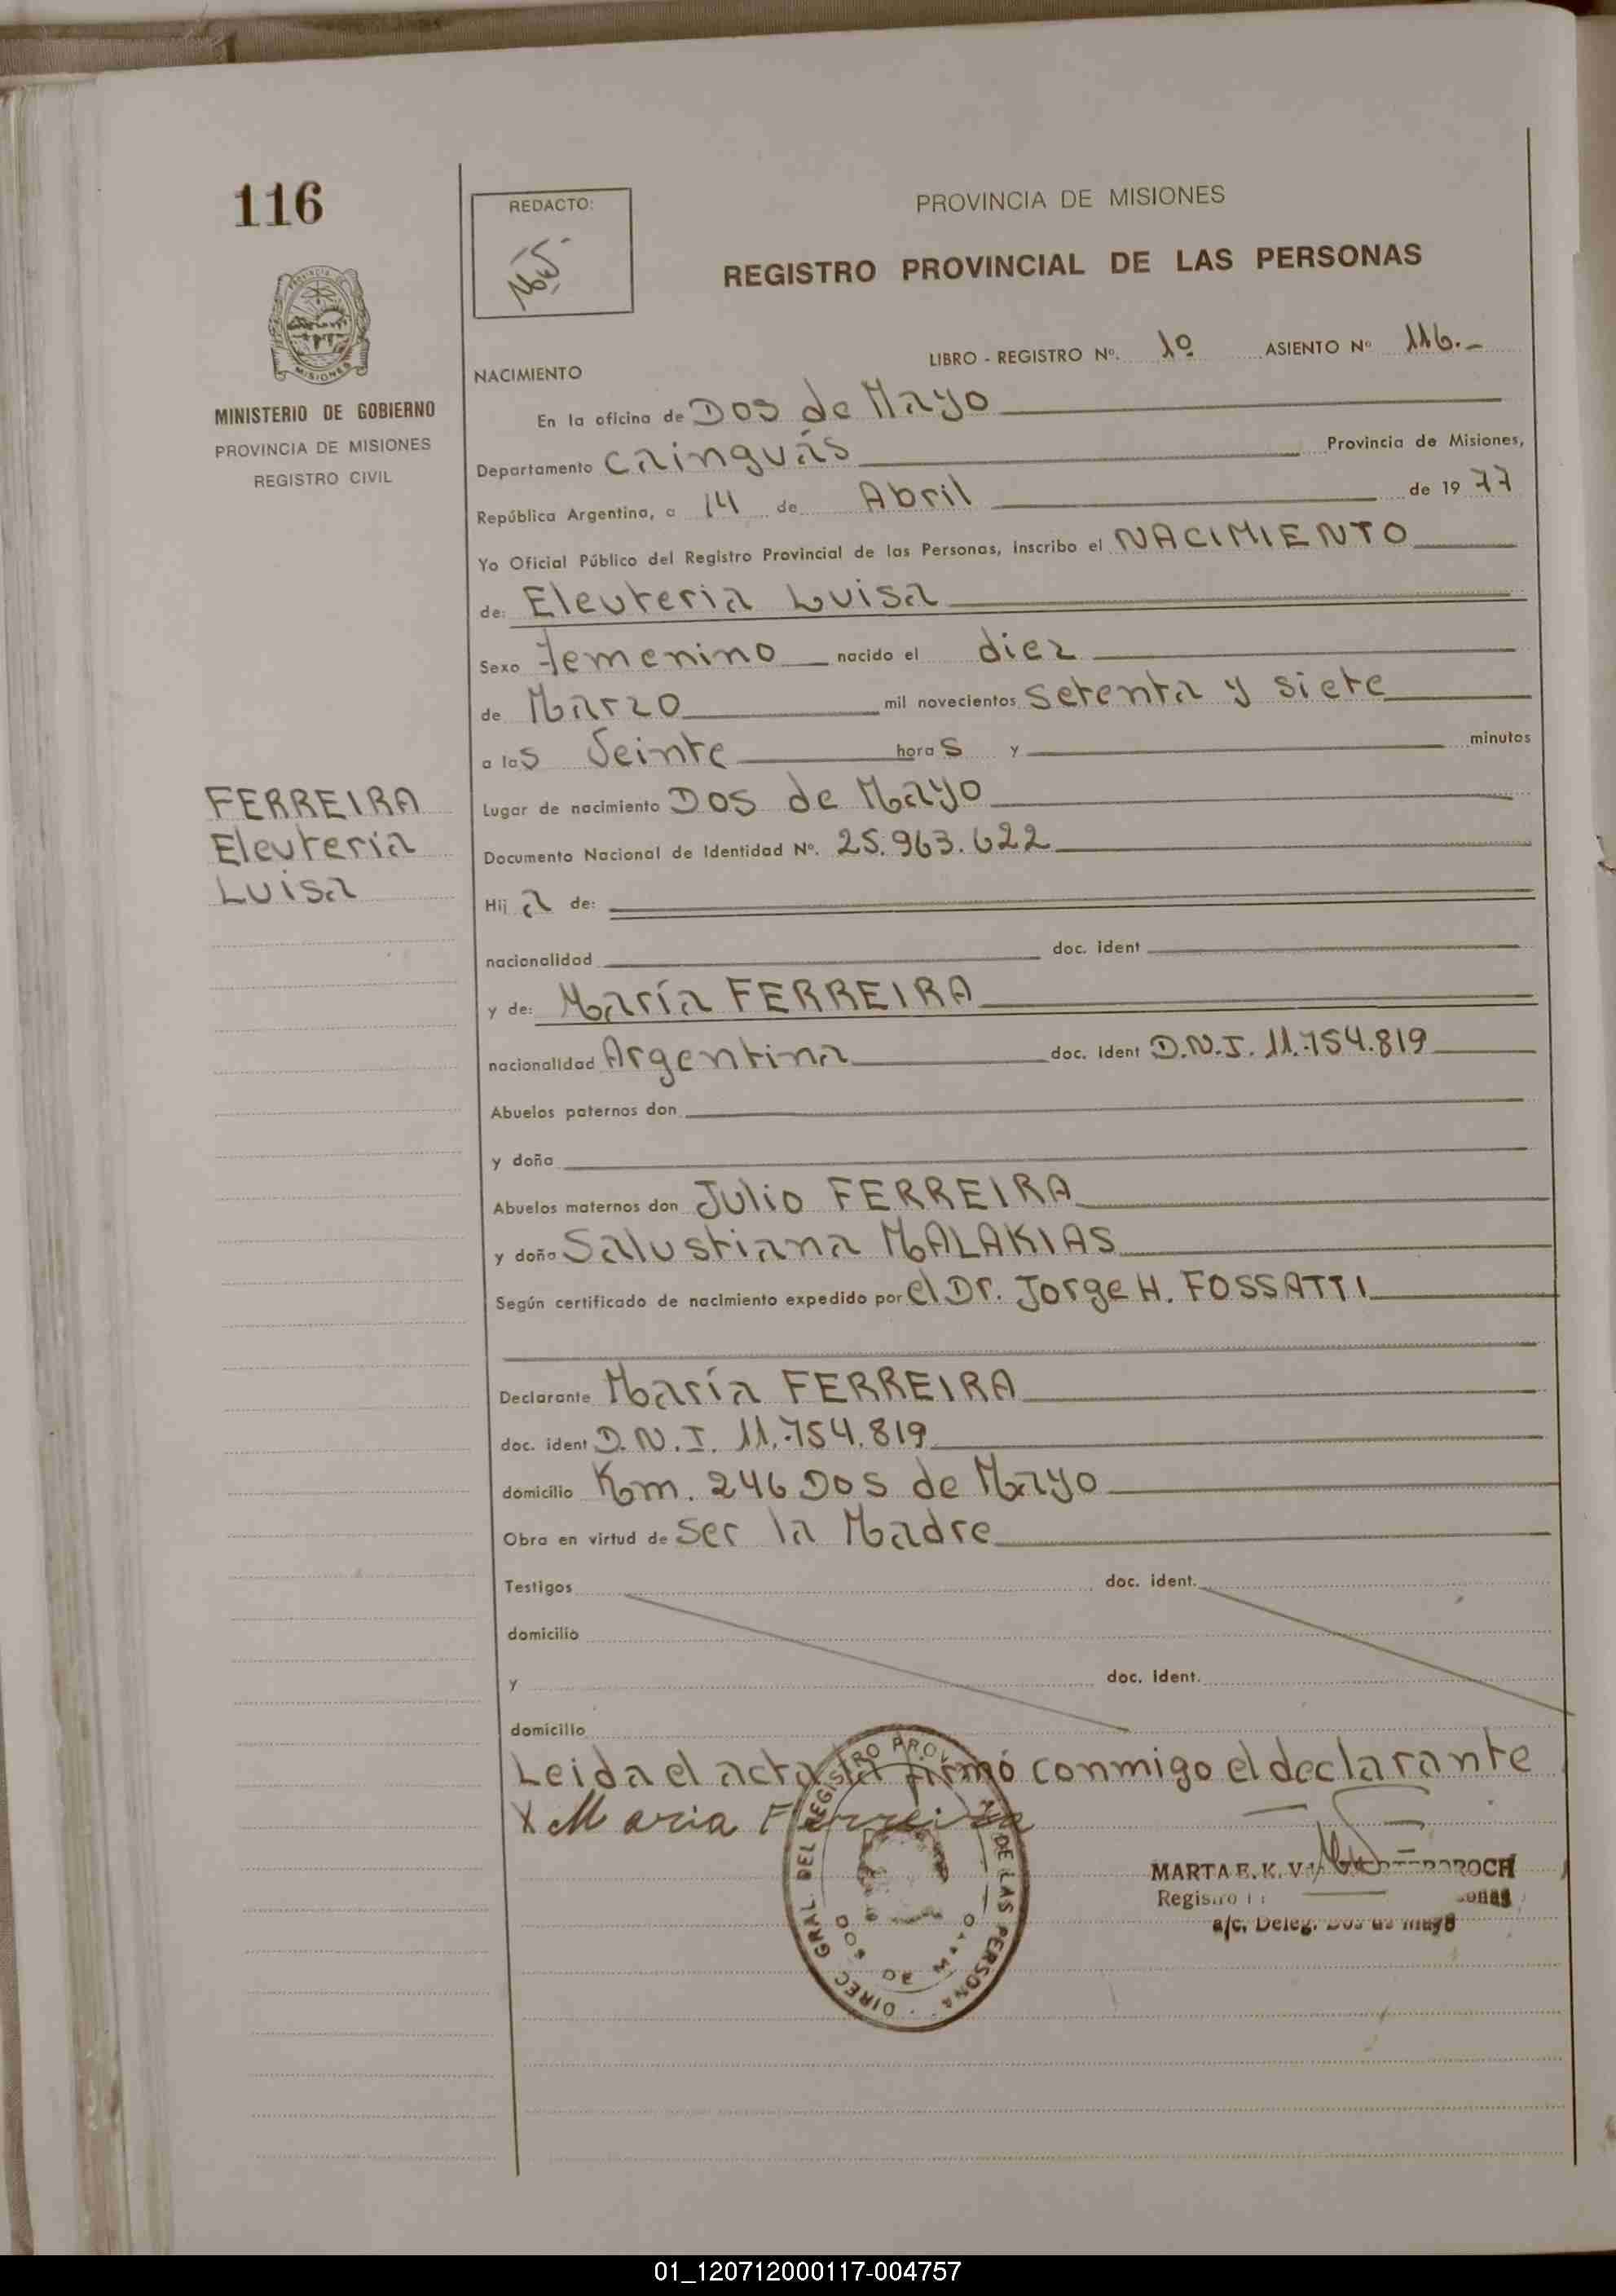 116
REDACTO:
PROVINCIA DE MISIONES
REGISTRO PROVINCIAL DE LAS PERSONAS
PROVINCIA
MISIONES
MINISTERIO DE GOBIERNO
PROVINCIA DE MISIONES
REGISTRO CIVIL
LIBRO - REGISTRO Nº. 1º ASIENTO Nº 116.-
NACIMIENTO
En la oficina de Dos de Mayo
Departamento Cainguás Provincia de Misiones,
República Argentina, a 14 de Abril de 1977
Yo Oficial Público del Registro Provincial de las Personas, inscribo el NACIMIENTO
de: Eleuteria Luisa
Sexo Femenino nacido el diez
de Marzo mil novecientos setenta y siete
a las Veinte horas y minutos
FERREIRA
Eleuteria
Luisa
Lugar de nacimiento Dos de Mayo
Documento Nacional de Identidad Nº. 25.963.622
Hija de:
nacionalidad doc. ident
y de: María FERREIRA
nacionalidad Argentina doc. ident D.N.I. 11.754.819
Abuelos paternos don
y doña
Abuelos maternos don Julio FERREIRA
y doña Salustiana MALAKIAS
Según certificado de nacimiento expedido por el Dr. Jorge H. FOSSATTI
Declarante María FERREIRA
doc. ident D.N.I. 11.754.819
domicilio Km. 246 Dos de Mayo
Obra en virtud de ser la Madre
Testigos doc. ident.
domicilio
y doc. ident.
domicilio
Leida el acta la firmó conmigo el declarante
X Maria Ferreira
DIREC GRAL. DEL REGISTRO PROV DE LAS PERSONA
DOS DE MAYO
MARTA E. K. V
Registro
a/c. Deleg. Dos de Mayo
01_120712000117-004757